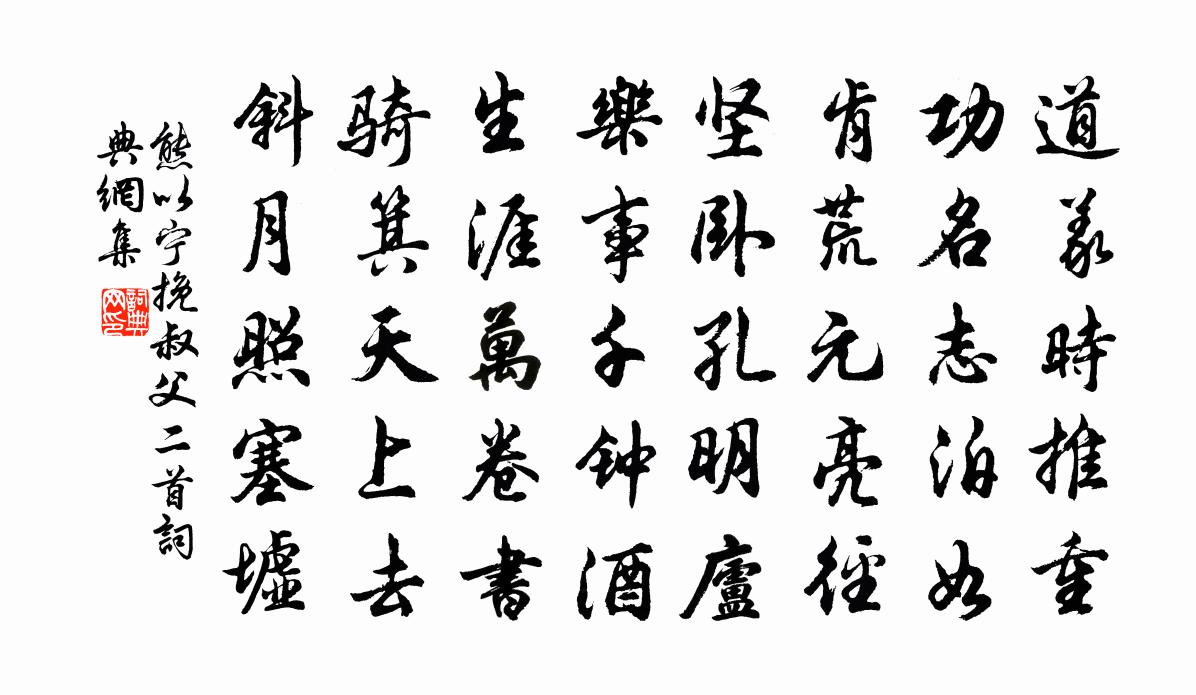 道義時推重
功名志泊如
肯荒元亮徑
坚卧孔明廬
樂事千钟酒
生涯萬卷書
騎箕天上去
斜月照塞墟
熊以宁挽叔父二首詞
典網集
詞典
网印